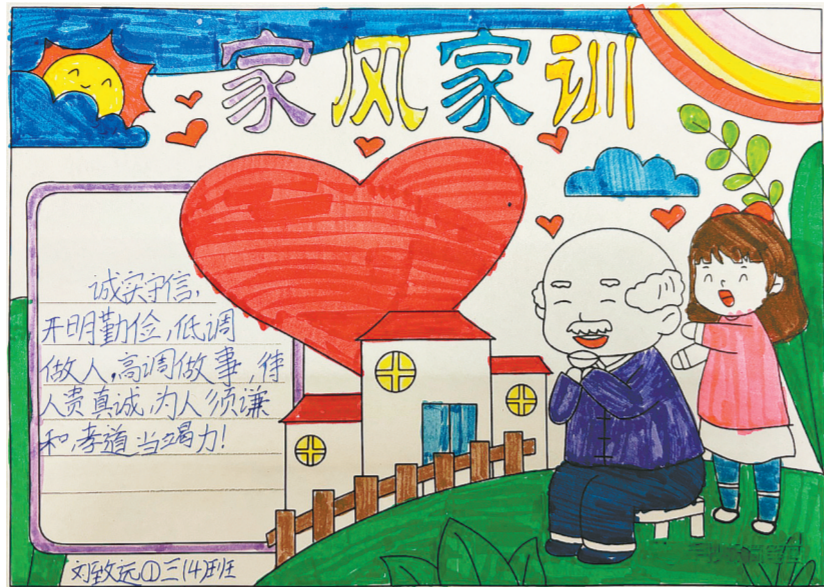 家风家训
诚实守信,
开明勤俭,低调
做人,高调做事,待
人贵真诚,为人须谦
和,孝道当竭力!
刘致远①三(4)班